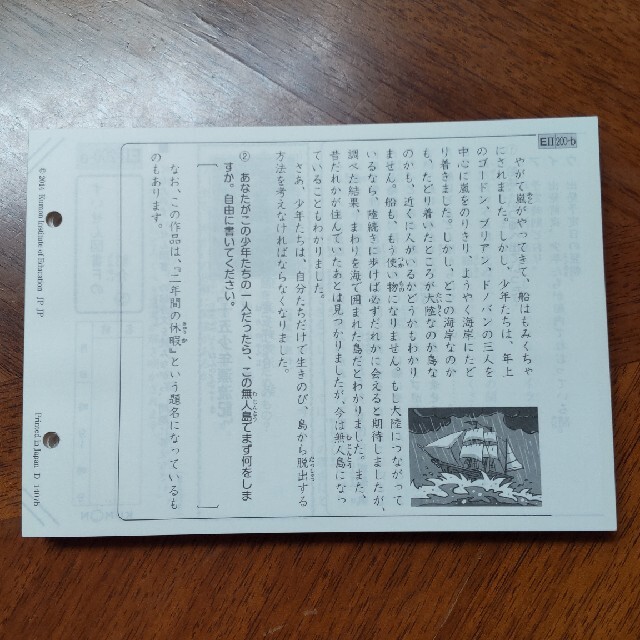 EⅡ200-b
やがて嵐がやってきて、船はもみくちゃ
にされました。しかし、少年たちは、年上
のゴードン、ブリアン、ドノバンの三人を
中心に嵐をのりきり、ようやく海岸にたど
り着きました。しかし、どこの海岸なのか
も、たどり着いたところが大陸なのか島な
のかも、近くに人がいるかどうかもわかり
ません。船も、もう使い物になりません。もし大陸につながって
いるなら、陸続きに歩けば必ずだれかに会えると期待しましたが、
調べた結果、まわりを海で囲まれた島だとわかりました。また、
昔だれかが住んでいたあとは見つかりましたが、今は無人島になっ
ていることもわかりました。
さあ、少年たちは、自分たちだけで生きのび、島から脱出する
方法を考えなければならなくなりました。
② あなたがこの少年たちの一人だったら、この無人島でまず何をしま
すか。自由に書いてください。
なお、この作品は、『二年間の休暇』という題名になっているも
のもあります。
Kumon Institute of Education JP JP
Printed in Japan